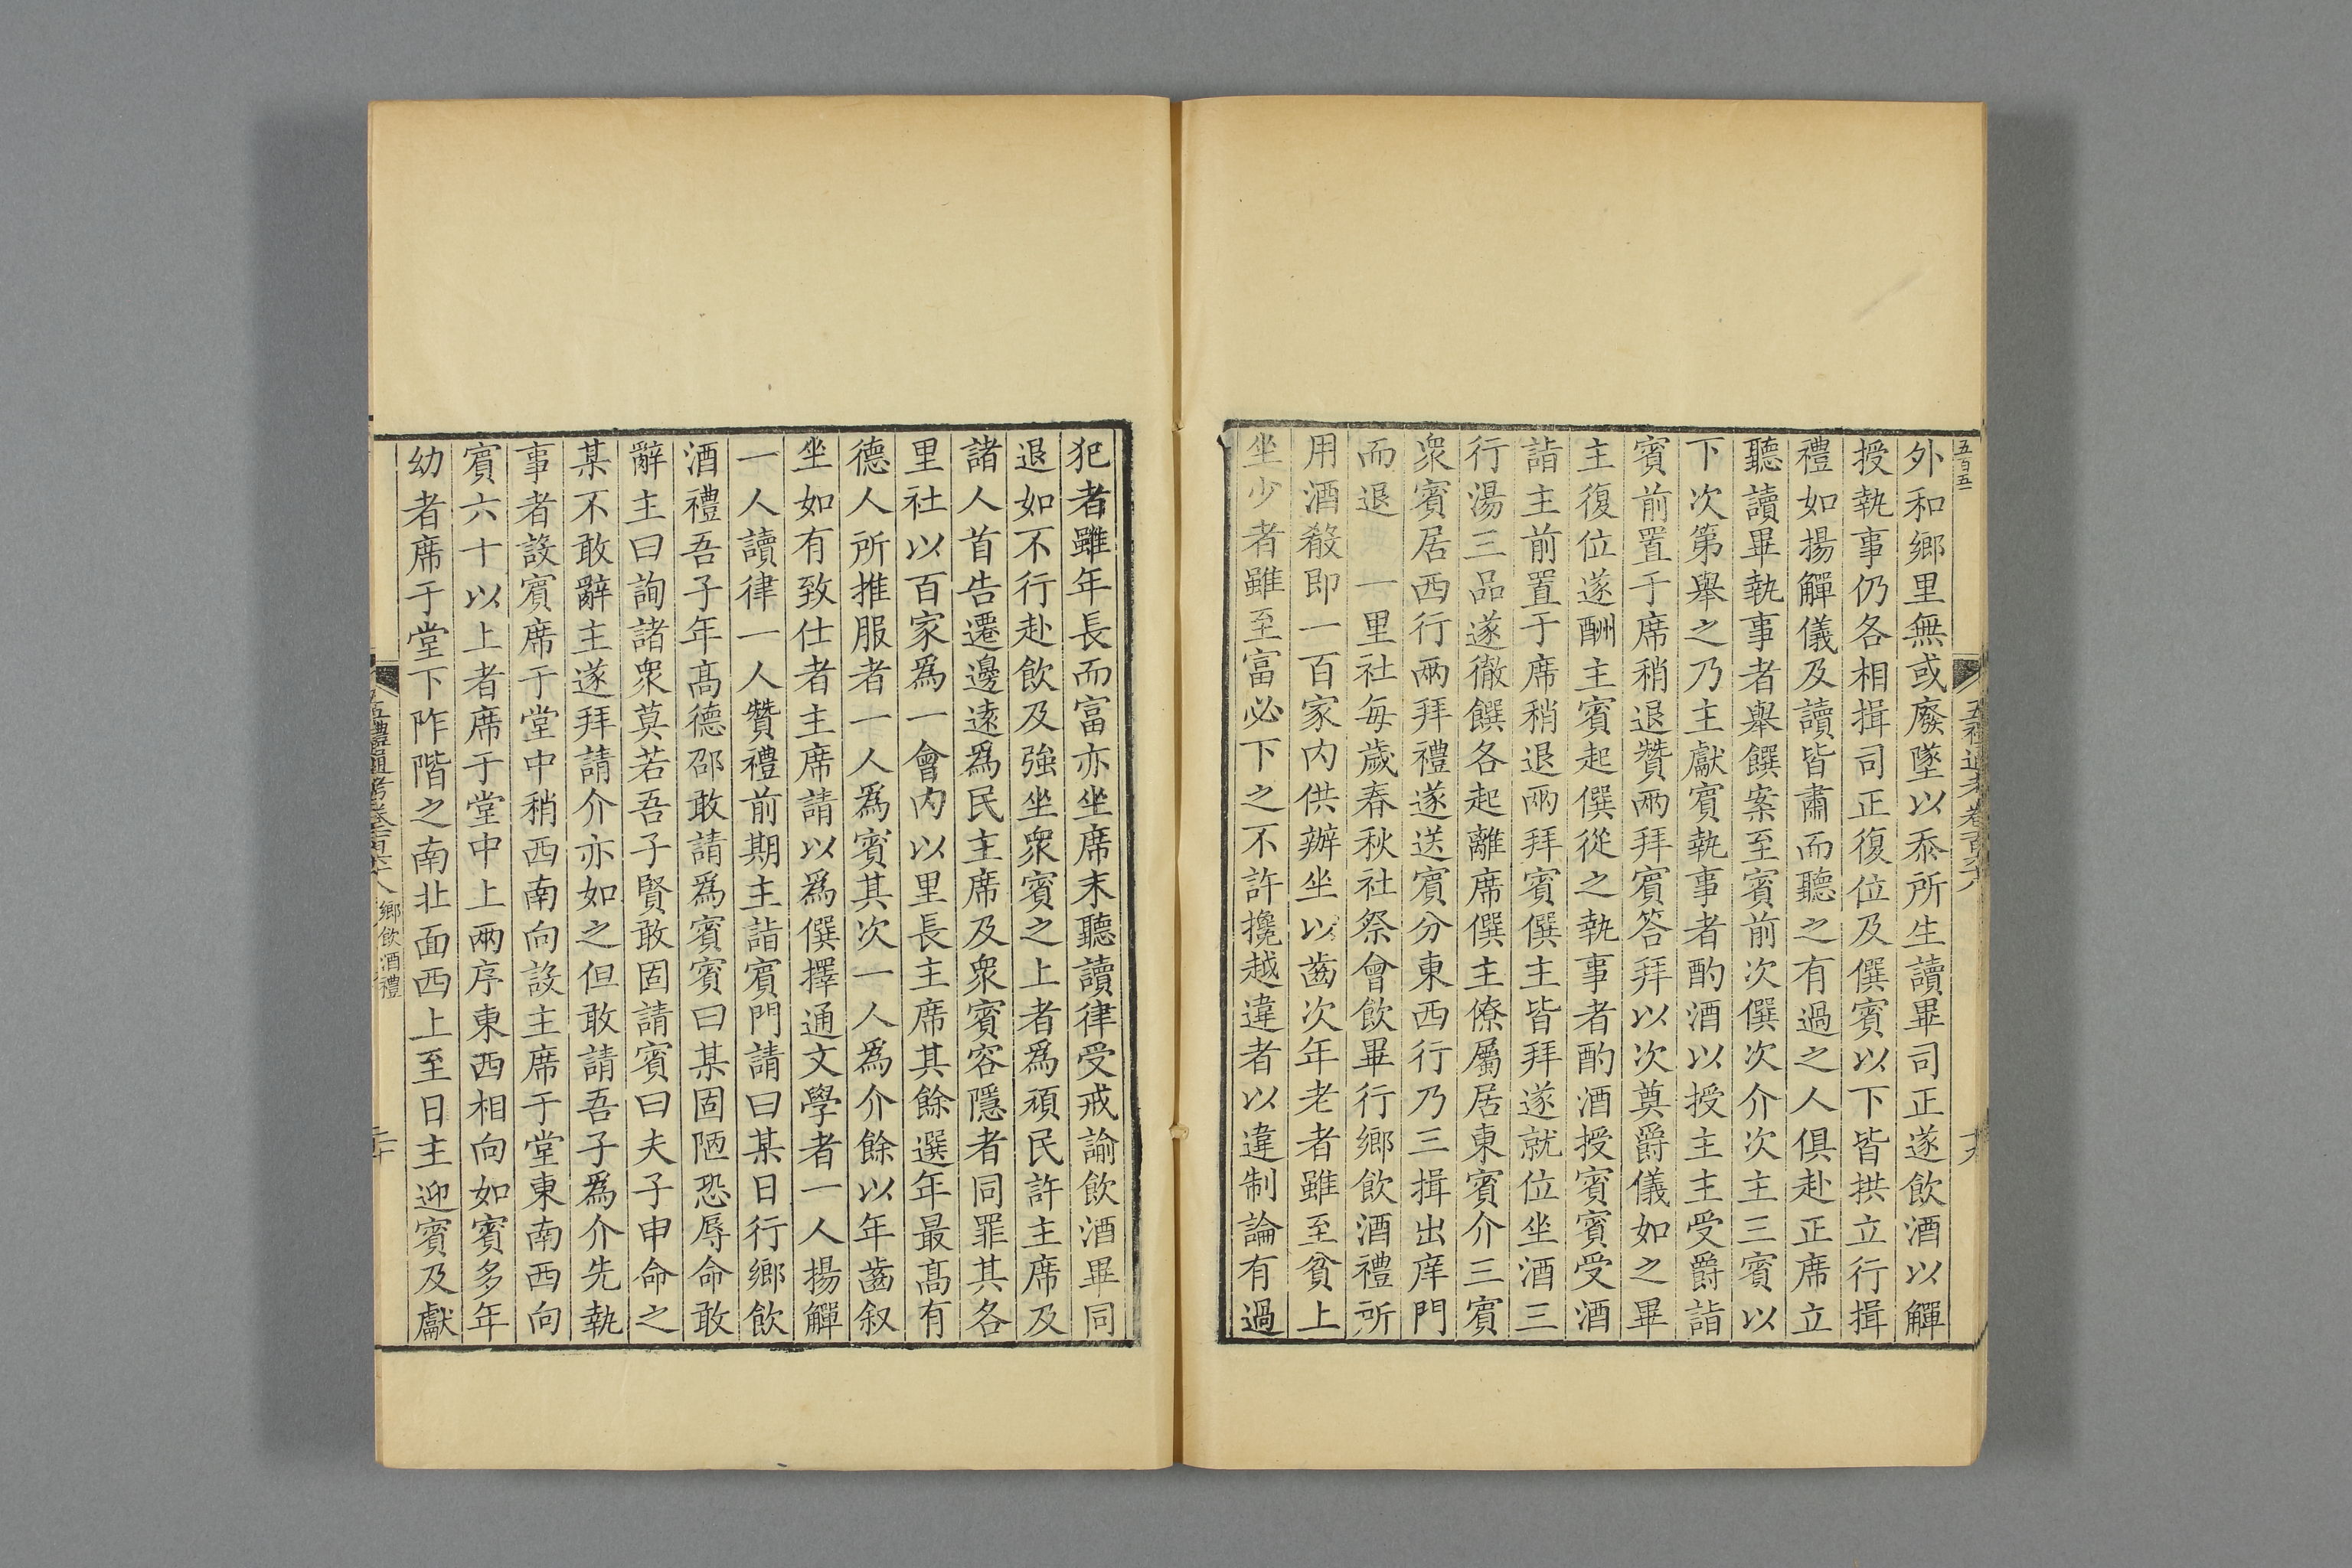 五百五一
五禮通考卷一百六十八
十九
外和鄉里無或廢墜以忝所生讀畢司正遂飲酒以觶
授執事仍各相揖司正復位及僎賓以下皆拱立行揖
禮如揚觶儀及讀皆肅而聽之有過之人俱赴正席立
聽讀畢執事者舉饌案至賓前次僎次介次主三賓以
下次第舉之乃主獻賓執事者酌酒以授主主受爵詣
賓前置于席稍退贊兩拜賓答拜以次奠爵儀如之畢
主復位遂酬主賓起僎從之執事者酌酒授賓賓受酒
詣主前置于席稍退兩拜賓僎主皆拜遂就位坐酒三
行湯三品遂徹饌各起離席僎主僚屬居東賓介三賓
衆賓居西行兩拜禮遂送賓分東西行乃三揖出庠門
而退 一里社每歲春秋社祭會飲畢行鄉飲酒禮所
用酒殽即一百家内供辦坐以齒次年老者雖至貧上
坐少者雖至富必下之不許攙越違者以違制論有過
犯者雖年長而富亦坐席末聽讀律受戒諭飲酒畢同
退如不行赴飲及強坐衆賓之上者爲頑民許主席及
諸人首告遷邊遠爲民主席及衆賓容隱者同罪其各
里社以百家爲一會内以里長主席其餘選年最高有
德人所推服者一人爲賓其次一人爲介餘以年齒叙
坐如有致仕者主席請以爲僎擇通文學者一人揚觶
一人讀律一人贊禮前期主詣賓門請曰某日行鄉飲
酒禮吾子年高德邵敢請爲賓賓曰某固陋恐辱命敢
辭主曰詢諸衆莫若吾子賢敢固請賓曰夫子申命之
某不敢辭主遂拜請介亦如之但敢請吾子爲介先執
事者設賓席于堂中稍西南向設主席于堂東南西向
賓六十以上者席于堂中上兩序東西相向如賓多年
幼者席于堂下阼階之南北面西上至日主迎賓及獻
五禮通考卷一百六十八 鄉飲酒禮
二十